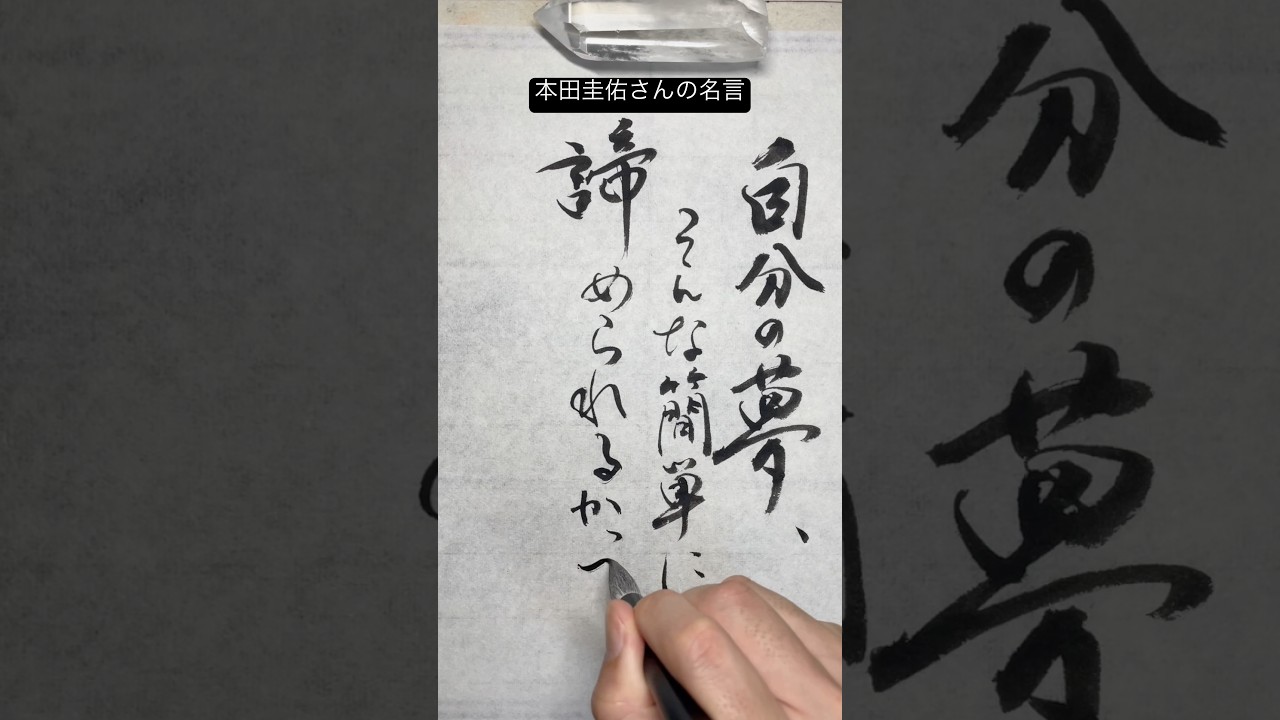 本田圭佑さんの名言
自分の夢、
そんな簡単に
諦められるかっ